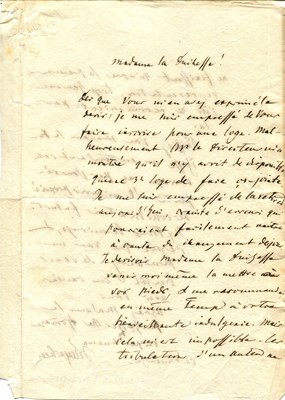 Madame la Duchesse!
Dès que vous m'en avez exprimé le
desir, je me suis empressé de vous
faire inscrire pour une loge. Mal-
heureusement Mr le Directeur m'a
montré qu'il n'y avoit de disponible
qu'une 3e loge de face, ci-jointe
Je me suis empressé de la retenir
aujourd'hui, crainte d'erreurs qui
pouvaient facilement naitre
à cause de changement de jour
Je desirois Madame la Duchesse
venir moi même la mettre à
vos pieds & me recommander
en même temps à votre
bienveillante indulgence. Mais
cela m'est impossible. Les
tribulations d'un